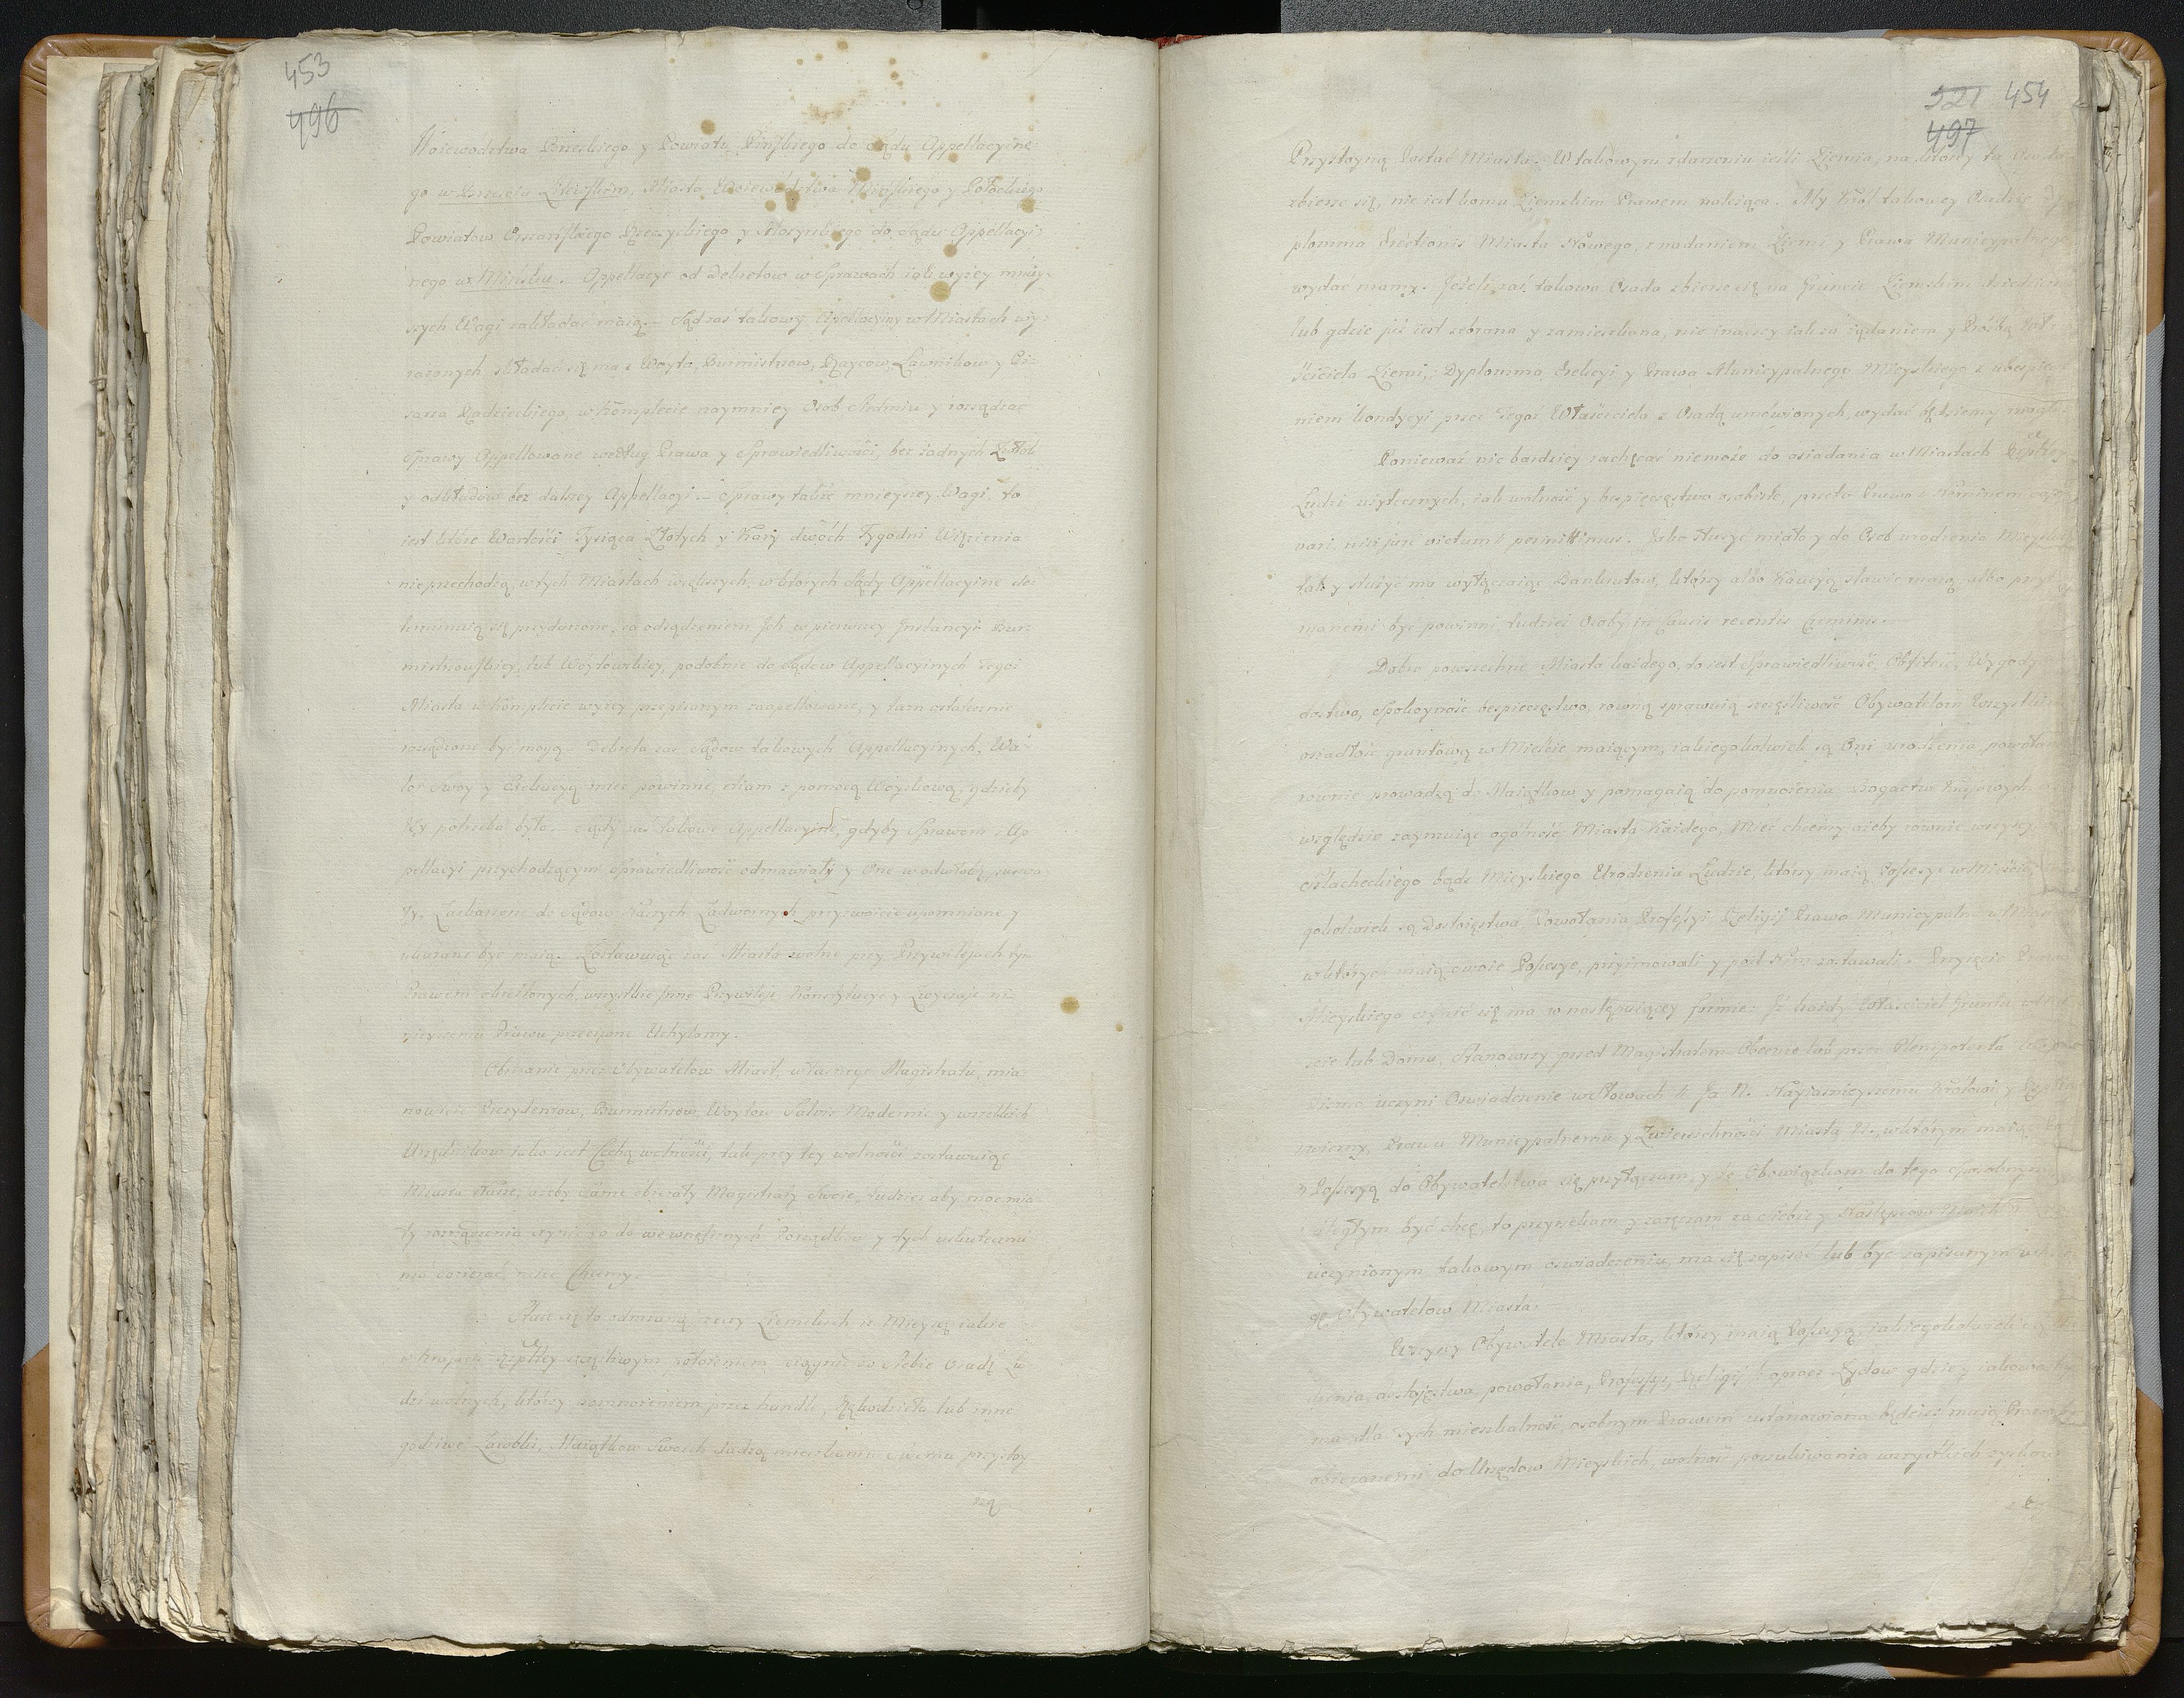 453
496
Woiewodztwa Brzeskiego y Powiatu Pińskiego do Sądu Appellacyine
go w Brzesciu Litewskim, Miasta Woiewodztwa Mińskiego y Połockiego
Powiatow Orszańskiego Rzeczyckiego y Mozyrskiego do Sądu Appellacyi-
nego w Mińsku. Appellacye od Dekretow w Sprawach iak wyżey mniey-
szych Wagi zakładać maią. Sąd zaś takowy Apellacyiny w Miastach wy-
rażonych składać się ma z Woyta, Burmistrzow, Raycow, Ławnikow y Pi-
sarza Radzieckiego, w Komplecie naymniey Osob Siedmiu y rozsądzać
Sprawy Appellowane według Prawa y Sprawiedliwości, bez żadnych Zwłok
y odkładów bez dalszey Appellacyi. Sprawy także mnieyszey Wagi, to
iest które Wartości Tysiąca Złotych y Kary dwóch Tygodni Więzienia
nie przechodzą, w tych Miastach większych, w ktorych Sądy Appellacyine de-
terminuią się przydane, za odsądzeniem Jch w pierwszey Instancyi Bur-
mistrzowskiey, lub Wóytowskiey, podobnie do Sądow Appellacyinych tegoż
Miasta w Komplecie wyżey przepisanym zaapellowane, y tam ostatecznie
rozsądzone być mogą. Dekreta zaś Sądow takowych Appellacyinych, Wa-
lor Swoy y Exekucyą mieć powinne, etiam z pomocą Woyskową, gdzieby
tey potrzeba była. Sądy zaś takowe Appellacyine, gdyby Sprawom z Ap
pellacyi przychodzącym Sprawiedliwość odmawiały y One w odwłokę puszcza
ły, Zaskarżone do Sądow Naszych Zadwornych przyzwoicie upomnione y
ukarane być maią. Zostawuiąc zaś Miasta wolne przy Przywilejach tym
Prawem określonych, wszystkie inne Przywileje Konstytucye y Zwyczaje ni-
nieyszemu Prawu przeciwne Uchylamy.
Obieranie przez Obywatelow Miast, własnego Magistratu, mia-
nowicie Prezydentow, Burmistrzow, Woytow Salvis Modernis y wszelkich
Urzędnikow iako iest Cechą wolności, tak przy tey wolności zostawuiąc
Miasta Nasze, ażeby same obierały Magistraty Swoie, tudzież aby moc mia
ły rozrządzenia czynić co do wewnętrznych Porządkow y tych uskutecznie
nia dozierać, mieć Chcemy.
Stać się to odmianą rzeczy Ziemskich w Mieysca iakie
w Krajach Rzpltey szczęśliwym położeniem, ciągnie do siebie Osadę Lu
dzi wolnych, którzy rozmnożeniem przez handle, Rękodzieła lub inne
godziwe Zarobki, Maiątkow Swoich dadzą mieszkaniu Swemu przystoy
ną
321 454
497
Przystoyną Postać Miasta. W takowym zdarzeniu ieśli Ziemia, na ktorey ta Osada
zbierze się, nie iest komu Ziemskim Prawem należąca. My Król takowey Osadzie Dy
plomma Erectionis Miasta Nowego, z nadaniem Ziemi y Prawa Municypalnego
wydać mamy. Jeżeli zaś takowa Osada zbierze się na Gruncie Ziemskim dziedzicz
lub gdzie już iest zebrana y zamieszkana, nie inaczey iak za żądaniem y Prożbą Wła-
ściciela Ziemi, Dyplomma Erekcyi y Prawa Municypalnego Mieyskiego z ubespiecze
niem kondycyi przez Tegoż Właściciela z Osadą umówionych, wydać będziemy mogli
Ponieważ nic bardziey zachęcać niemoże do osiadania w Miastach Rzpltey
Ludzi użytecznych, iak wolność y bespieczęstwo osobiste, przeto Prawo: Neminem capti
vari, nisi jure victum permittimus. Jako służyć miało y do Osob urodzenia Mieyskiego
tak y służyć ma wyłączaiąc Bankrutow, którzy albo Kaucyą stawić maią, albo przytrzy
manemi być powinni, tudzież Osoby in Causis recentis Criminis.
Dobro powszechne Miasta każdego, to iest Sprawiedliwość, Obfitość, Wygody
dostwo, Spokoyność bespieczęstwo, rowną sprawuią szczęśliwość Obywatelom wszystkim
osiadłość gruntową w Mieście maiącym, iakiegokolwiek są Oni urodzenia, powołania
rownie prowadzą do Maiątkow y pomagaią do pomnożenia Bogactw Krajowych.
względzie zaymuiąc ogolność Miasta Każdego, Mieć chcemy ażeby równie wszyscy
Szlacheckiego bądź Mieyskiego Urodzenia Ludzie, którzy maią Possesye w Mieście,
gokolwiek są Dostoięstwa, Powołania, Professyi Religij Prawo Municypalne w Mia
w których maią swoie Possesye, przyimowali y pod Nim zostawali. Przyięcie Prawa
Mieyskiego czynić się ma w następuiącey formie: Jż każdy Właściciel Gruntu w Mie
ście lub Domu, Stanowszy przed Magistratem Obecnie lub przez Plenipotenta
uczyni Oswiadczenie w słowach Ja N. Nayiaśnieyszemu Królowi y Rzpltey
wierny, Prawu Municypalnemu y Zwierzchności Miasta N., w którym maiąc
Possesyą do Obywatelstwa się przyłączam, y że Obowiązkom do tego Sposobnym
uległym być chcę, to przyrzekam y zaręczam za siebie y Następcow Moich
uczynionym takowym oswiadczeniu, ma się zapisać lub być zapisanym w
gę Obywatelow Miasta.
Wszyscy Obywatele Miasta, którzy maią Possesyą, iakiegokolwiek
dzenia, dostoięstwa, powołania, Professyi, Religij (oprocz Zydow gdzie y iakowa
ma dla tych mieszkalność, osobnym Prawem ustanowiona będzie) maią Prawo
obieranemi do Urzędow Mieyskich, wolność poszukiwania wszystkich zyskow